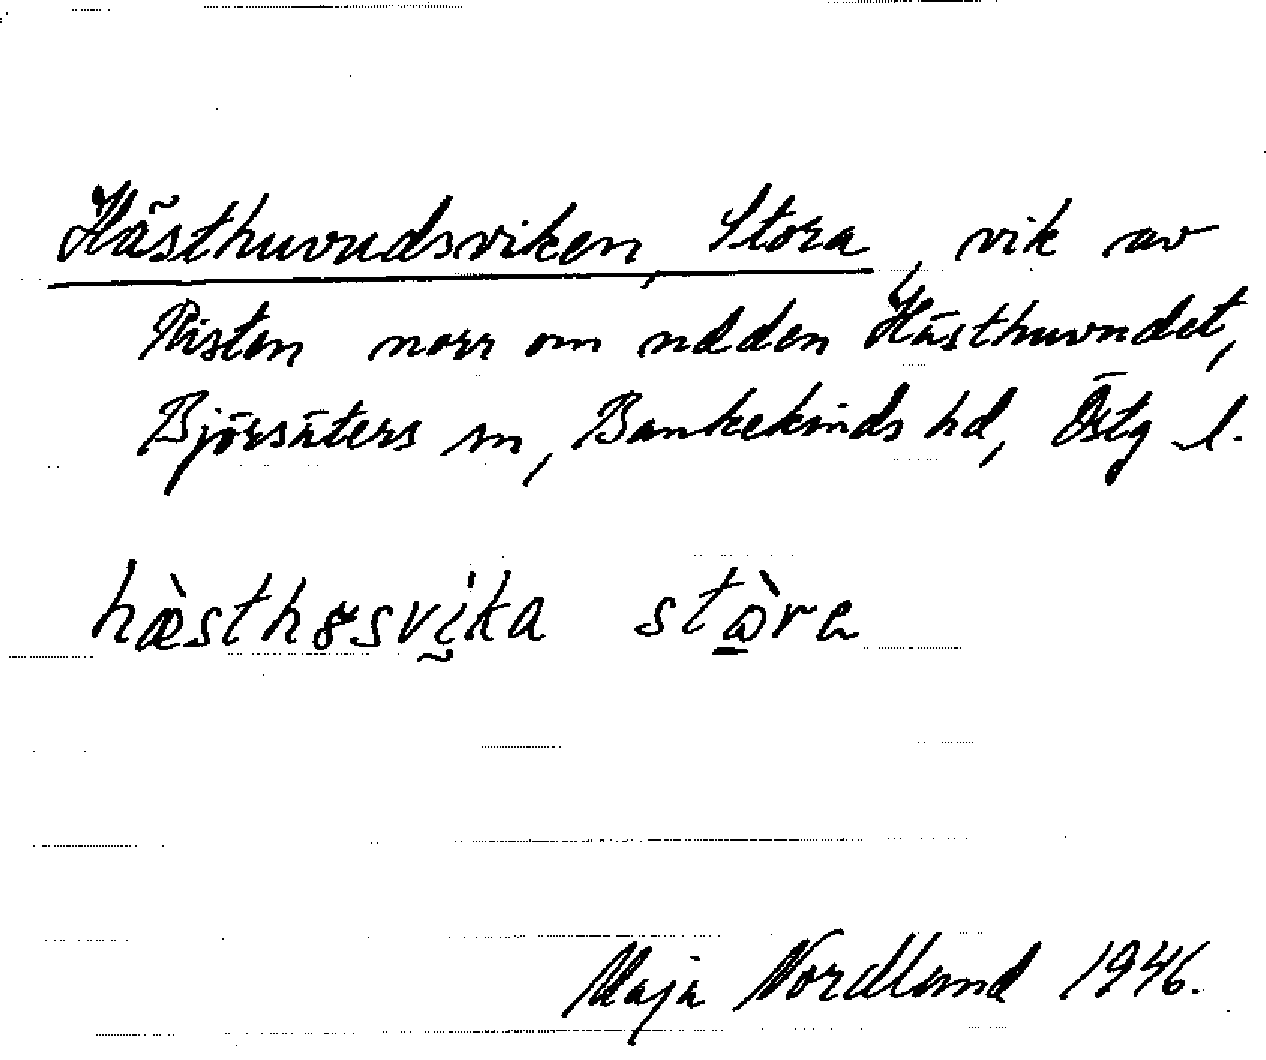 Hästhuvudsviken, Stora, vik av
Risten norr om udden Hästhuvudet,
Björsäters sn, Bankekinds hd, Östg l.
stɑ̀ra
Maja Nordlund 1946.